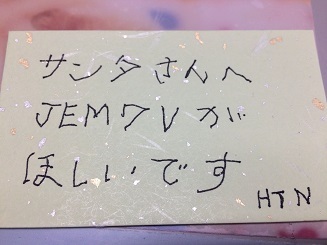 サンタさんへ
JEM7Vが
ほしいです
HTN